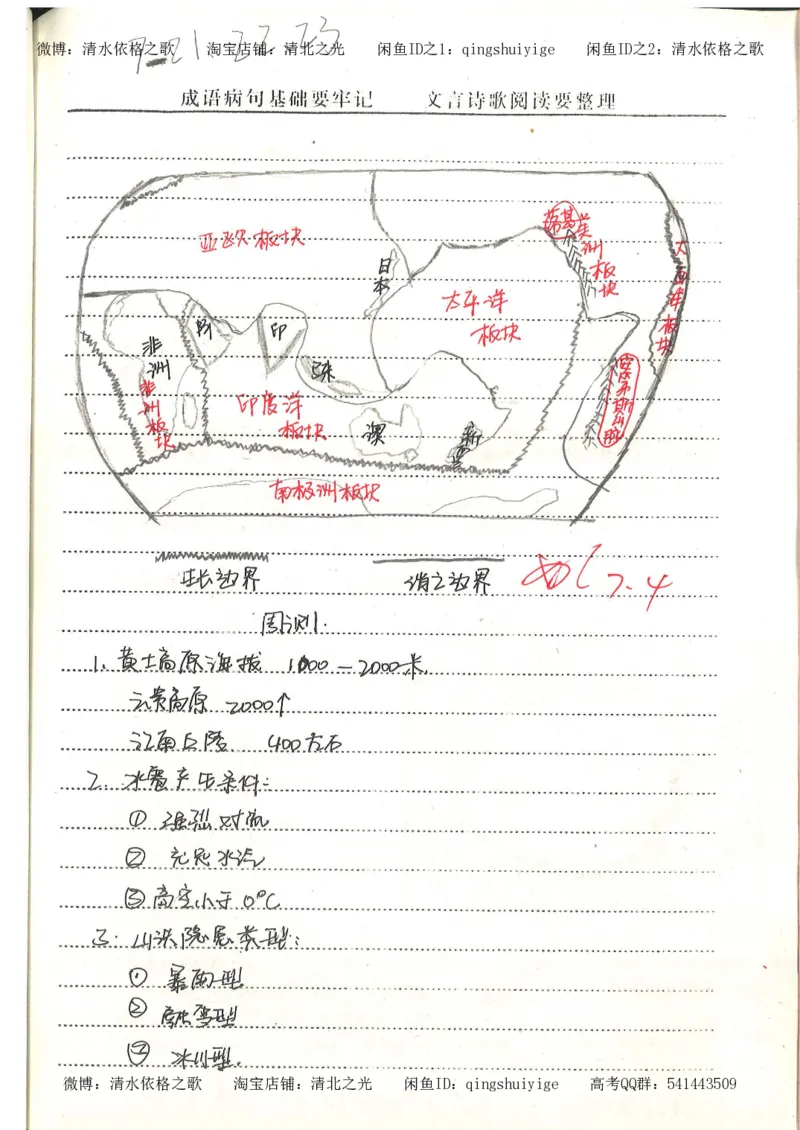 微博：清水依格之歌 淘宝店铺：清北之光 闲鱼ID之1：qingshuiyige 闲鱼ID之2：清水依格之歌
成语病句基础要牢记 文言诗歌阅读要整理
落基
美洲板块
大西洋板块
亚欧板块
日本
太平洋
板块
非洲
阿
印
非洲板块
印度洋
板块
澳
安第斯山脉
南极洲板块
生长边界 消亡边界
7.4
周测1.
1、黄土高原海拔 1000－2000米.
云贵高原 2000↑
江南丘陵 400左右
2、冰雹产生条件:
① 强烈对流
② 充足水汽
③ 高空小于0℃
3. 山洪隐患类型:
① 暴雨型
② 融雪型
③ 冰川型.
微博：清水依格之歌 淘宝店铺：清北之光 闲鱼ID：qingshuiyige 高考QQ群：541443509